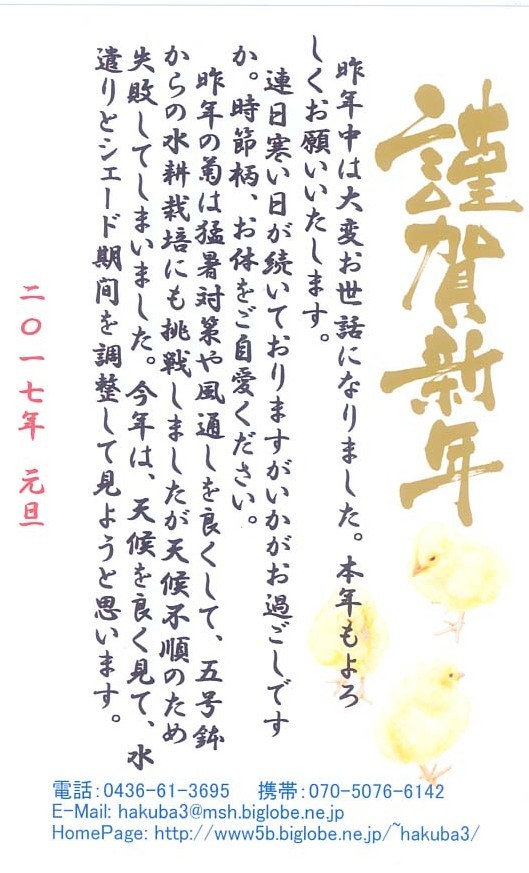 謹賀新年
昨年中は大変お世話になりました。本年もよろ
しくお願いいたします。
連日寒い日が続いておりますがいかがお過ごしです
か。時節柄、お体をご自愛ください。
昨年の菊は猛暑対策や風通しを良くして、五号鉢
からの水耕栽培にも挑戦しましたが天候不順のため
失敗してしまいました。今年は、天候を良く見て、水
遣りとシエード期間を調整して見ようと思います。
二〇一七年 元旦
電話:0436-61-3695 携帯:070-5076-6142
E-Mail: hakuba3@msh.biglobe.ne.jp
HomePage: http://www5b.biglobe.ne.jp/~hakuba3/